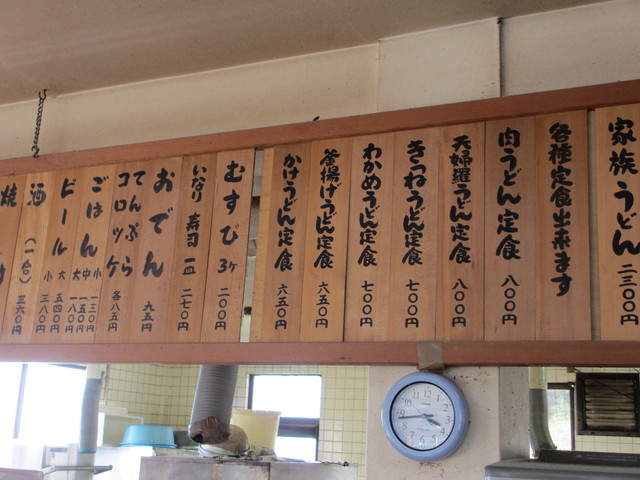 家族うどん 二三〇〇円
各種定食出来ます
肉うどん定食 八〇〇円
天婦羅うどん定食 八〇〇円
きつねうどん定食 七〇〇円
わかめうどん定食 七〇〇円
釜揚げうどん定食 六五〇円
かけうどん定食 六五〇円
むすび 3ヶ 二〇〇円
いなり寿司 一皿 二七〇円
おでん 九五円
てんぷら
コロッケ 各八五円
ごはん 小 一三〇円
中 一五〇円
大 一八〇円
ビール 大 五四〇円
小 三八〇円
酒(一合) 三六〇円
焼